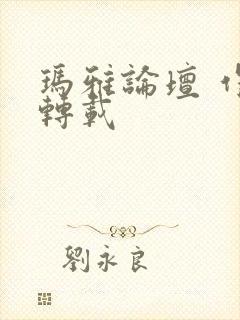 瑪雅論壇
轉載
劉永良